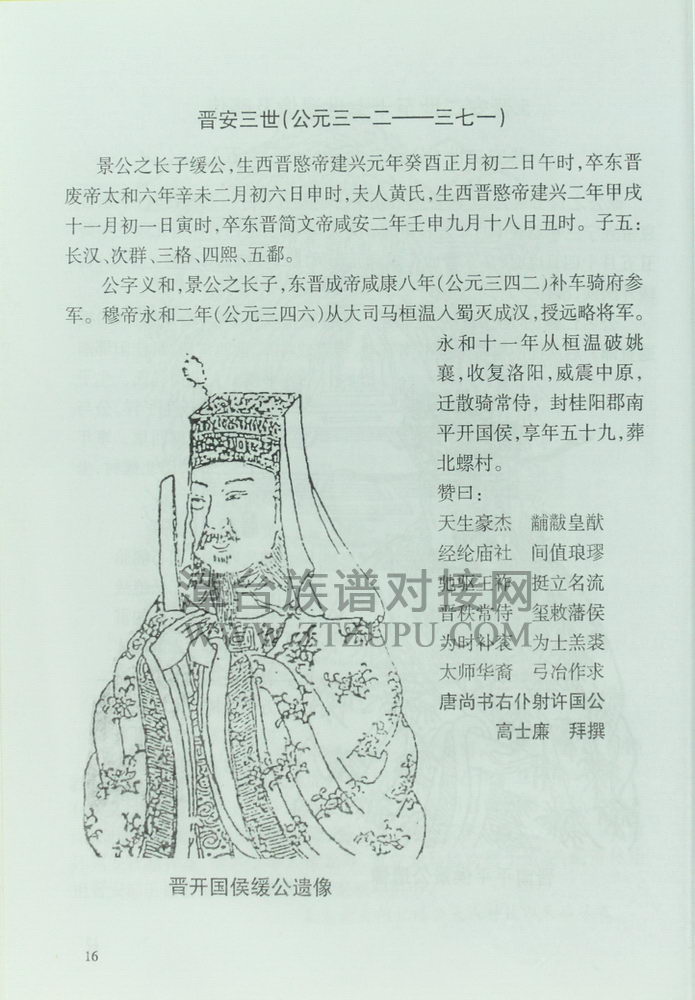 晋安三世(公元三一二——三七一)
景公之长子缓公,生西晋愍帝建兴元年癸酉正月初二日午时,卒东晋
废帝太和六年辛未二月初六日申时,夫人黄氏,生西晋愍帝建兴二年甲戌
十一月初一日寅时,卒东晋简文帝咸安二年壬申九月十八日丑时。子五:
长汉、次群、三格、四熙、五鄱。
公字义和,景公之长子,东晋成帝咸康八年(公元三四二)补车骑府参
军。穆帝永和二年(公元三四六)从大司马桓温入蜀灭成汉,授远略将军。
永和十一年从桓温破姚
襄,收复洛阳,威震中原,
迁散骑常侍,封桂阳郡南
平开国侯,享年五十九,葬
北螺村。
赞曰:
天生豪杰 黼黻皇猷
经纶庙社 间值琅璆
驰驱王祚 挺立名流
晋秩常侍 玺敕藩侯
为时补衮 为士羔裘
太师华裔 弓冶作求
唐尚书右仆射许国公
高士廉 拜撰
晋开国侯缓公遗像
16
台族谱对接网
WWW.ZTZUPU.COM